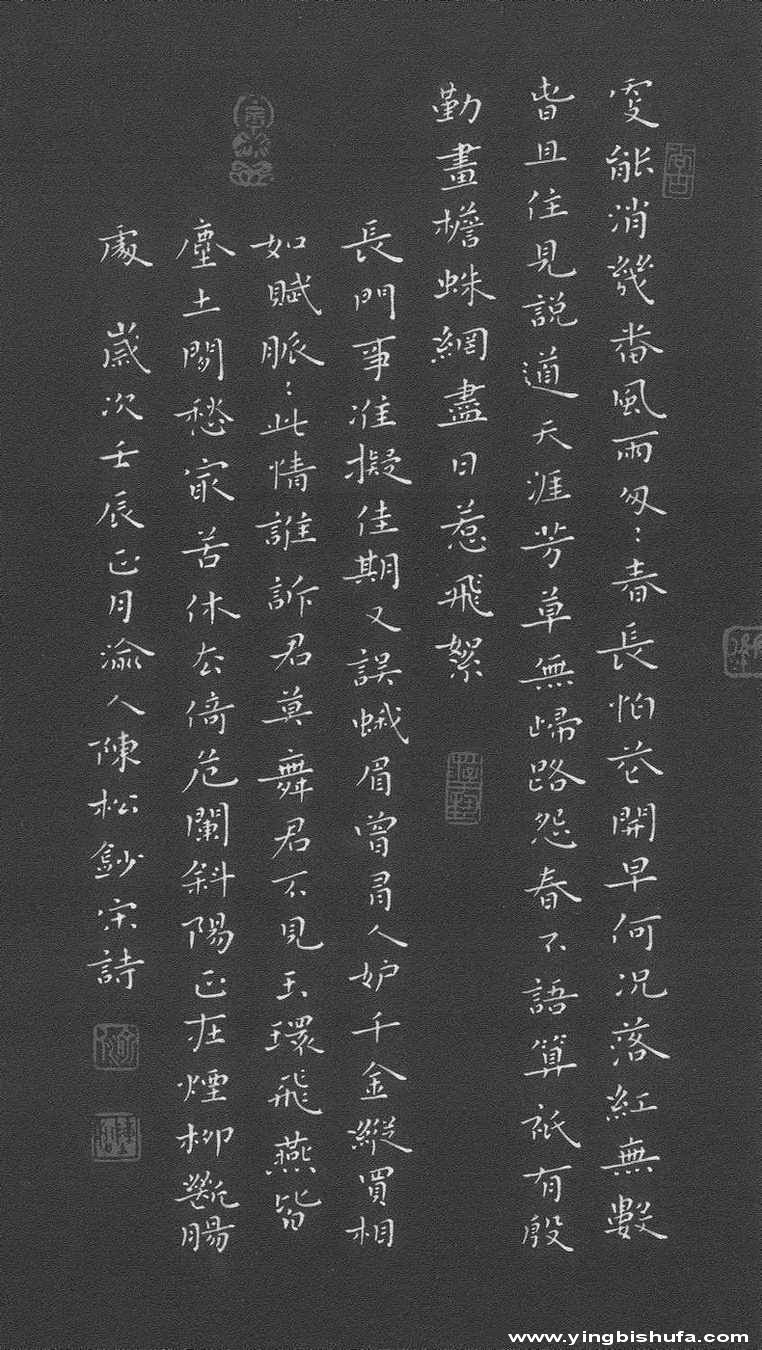 更能消幾番風雨匆〻春長怕花開早何況落紅無數
春且住見説道天涯芳草無歸路怨春不語算祇有殷
勤畫檐蛛網盡日惹飛絮
長門事准擬佳期又誤蛾眉曾有人妒千金縱買相
如賦脈〻此情誰訴君莫舞君不見玉環飛燕皆
塵土閑愁最苦休去倚危闌斜陽正在煙柳斷腸
處 歲次壬辰正月渝人陳松鈔宋詩
www.yingbishufa.com